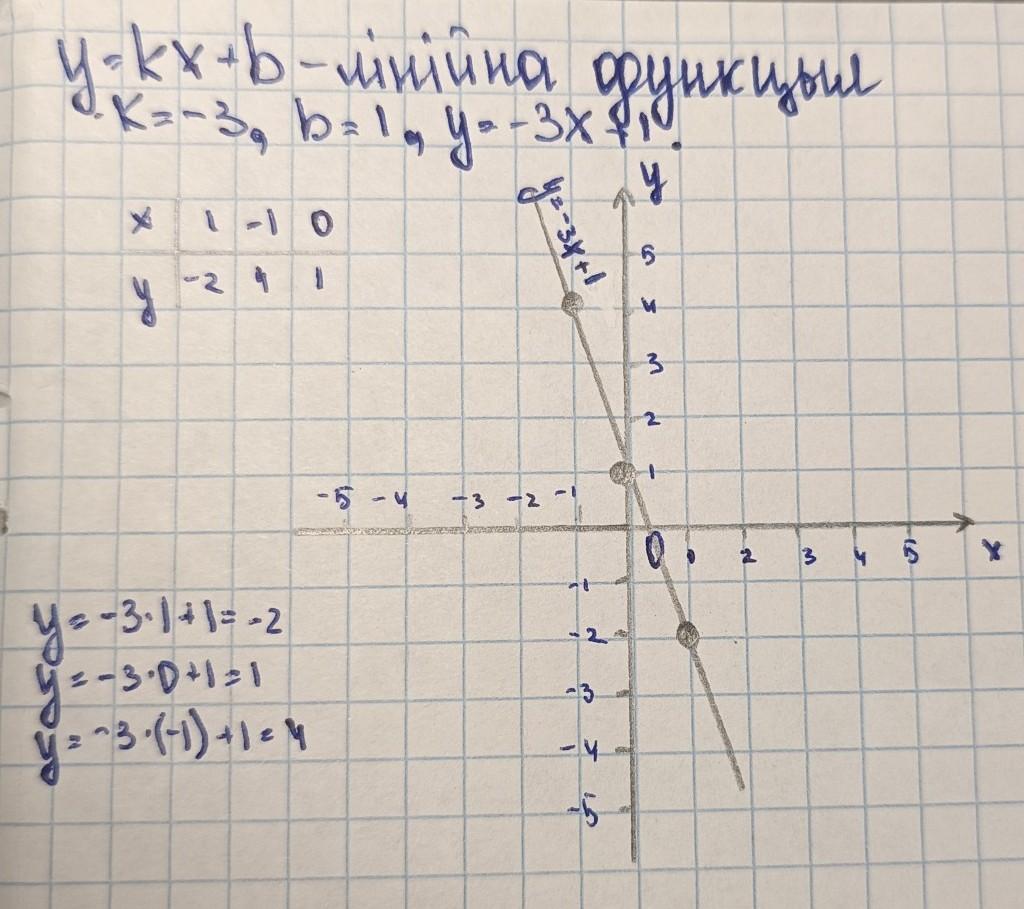 y=kx+b-лінійна функцыя
k=-3, b=1, y=-3x+1.
x 1 -1 0
y -2 4 1
y
y=-3x+1
5
4
3
2
1
-5 -4 -3 -2 -1
0 1 2 3 4 5 x
-1
-2
-3
-4
-5
y=-3·1+1=-2
y=-3·0+1=1
y=-3·(-1)+1=4